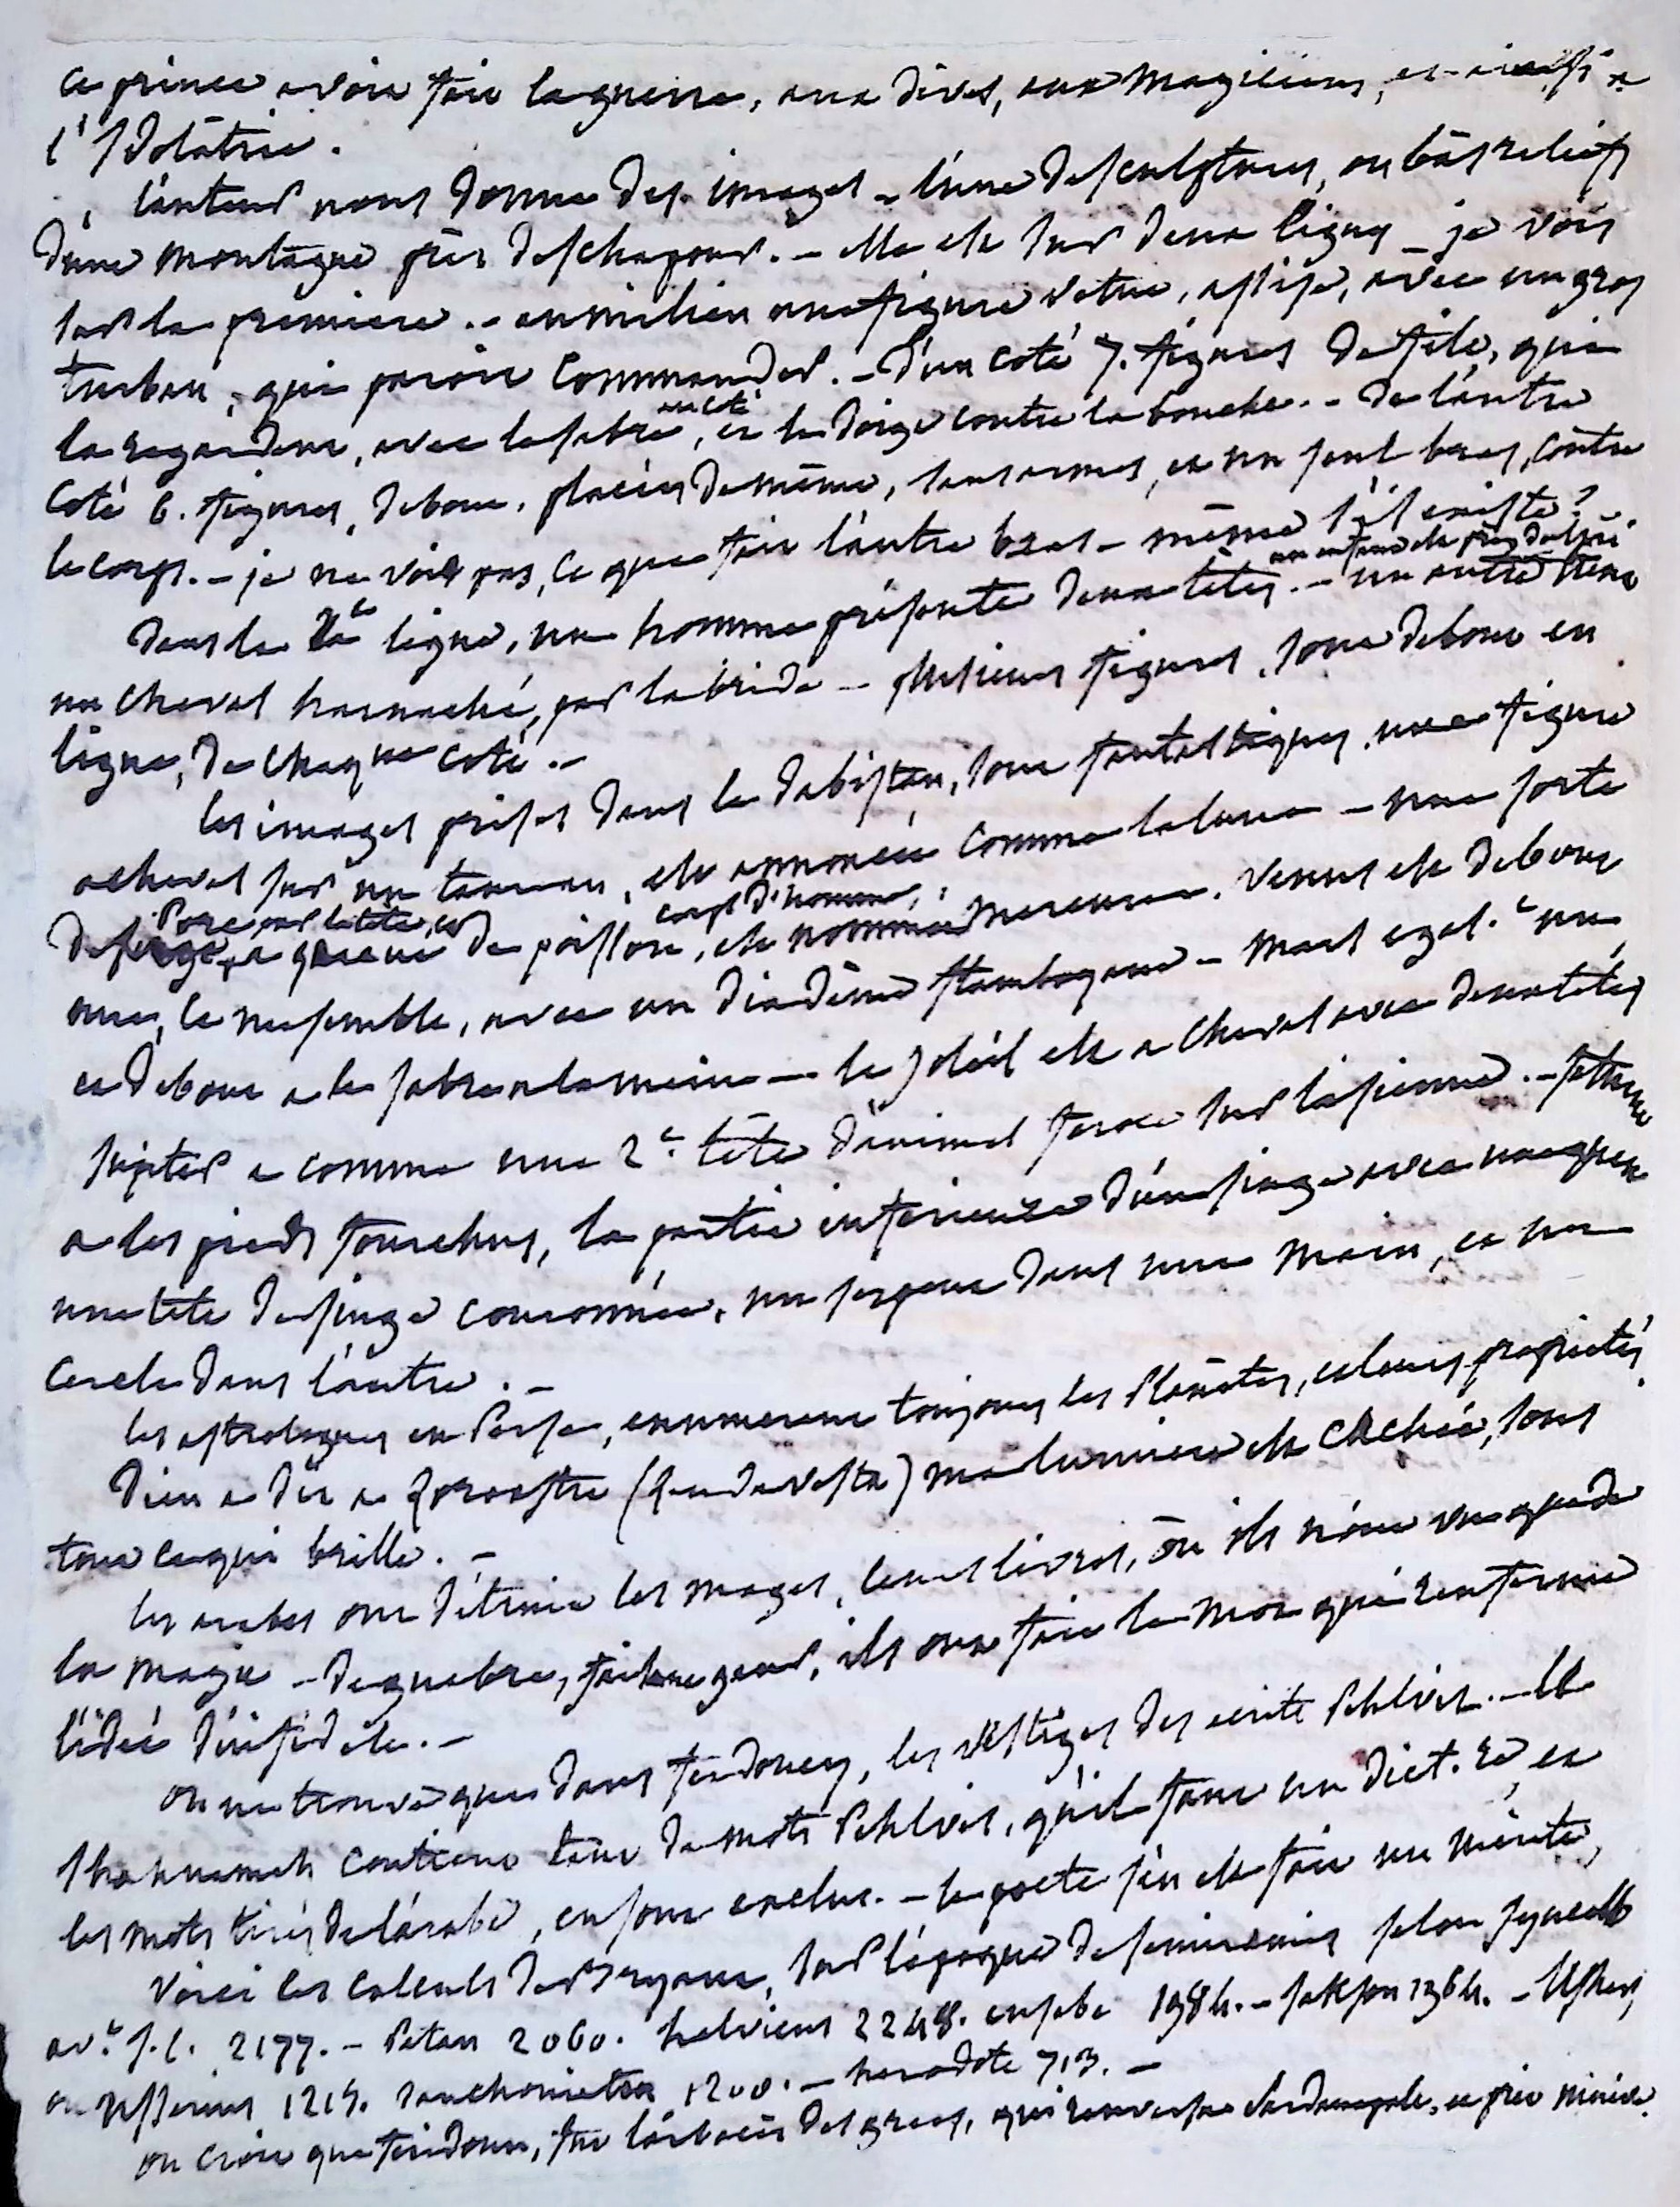 ce prince avoir fait la guerre, aux dives, aux magiciens, et aussi a
l'Idolâtrie.
l'auteur nous donne des images - l'une de sculptures, ou bas reliefs
d'une montagne près de schapour. - elle est sur deux lignes - je vois
sur la premiere. - au milieu une figure vetue, assise, avec un gros
turban, qui paroit commander. - d'un coté 7. figures de file, qui
la regardent, avec le sabre au coté, et le doigt contre la bouche. - de l'autre
coté 6. figures, debout, placées de même, sans armes, et un seul bras, contre
le corps. - je ne vois pas, ce que fait l'autre bras - même s'il existe?
dans la 2e ligne, un homme présente deux têtes. - un enfant est près de lui un autre tient
un cheval harnaché, par la bride - plusieurs figures, sont debout en
ligne, de chaque coté. -
les images prises dans le dabistan, sont fantastiques. une figure
a cheval sur un taureau, est annoncée comme la lune - une sorte
de porc par la tete, et a queue de poisson, corps d'homme, est nommé mercure. venus est debout
nue, ce me semble, avec un diadême flamboyant - mars egal.t nu
et debout a le sabre a la main - le soleil est a cheval avec deux têtes
jupiter a comme une 2e. tête d'animal feroce sur la sienne. - saturne
a les pieds fourchus, la partie inferieure d'un singe avec une queue
une tete de singe couronnée, un serpent dans une main, et un
cercle dans l'autre. -
les astrologues en Perse, enumerent toujours les Planètes, et leurs propriétés.
Dieu a dit a Zoroastre (Zendavesta) ma lumiere est cachée, sous
tout ce qui brille. -
les arabes ont détruit les mages, leurs livres, où ils n'ont vu que de
la magie - de guebre, ils ont fait le mot qui renferme
l'idée d'infidele. -
on ne trouve que dans ferdoucy, les vestiges des ecrits Pehlvis. - le
Shahnameh contient tant de mots Pehlvis, qu'il faut un dict.re, et
les mots tirés de l'arabe, en sont exclus. - le poete s'en est fait un mérite,
voici les calculs de Bryant, sur l'époque de semiramis selon syncelle
av.t J.C. 2177. - Petau 2060. helvicus 2248. eusebe 1984. - Jackson 1964. - Usher,
ou Usserius 1215. sanchoniaton 1200. - herodote 713. -
on croit que feridoun, fut l'arbacès des grecs, qui renversa Sardanapale, et prit ninive.